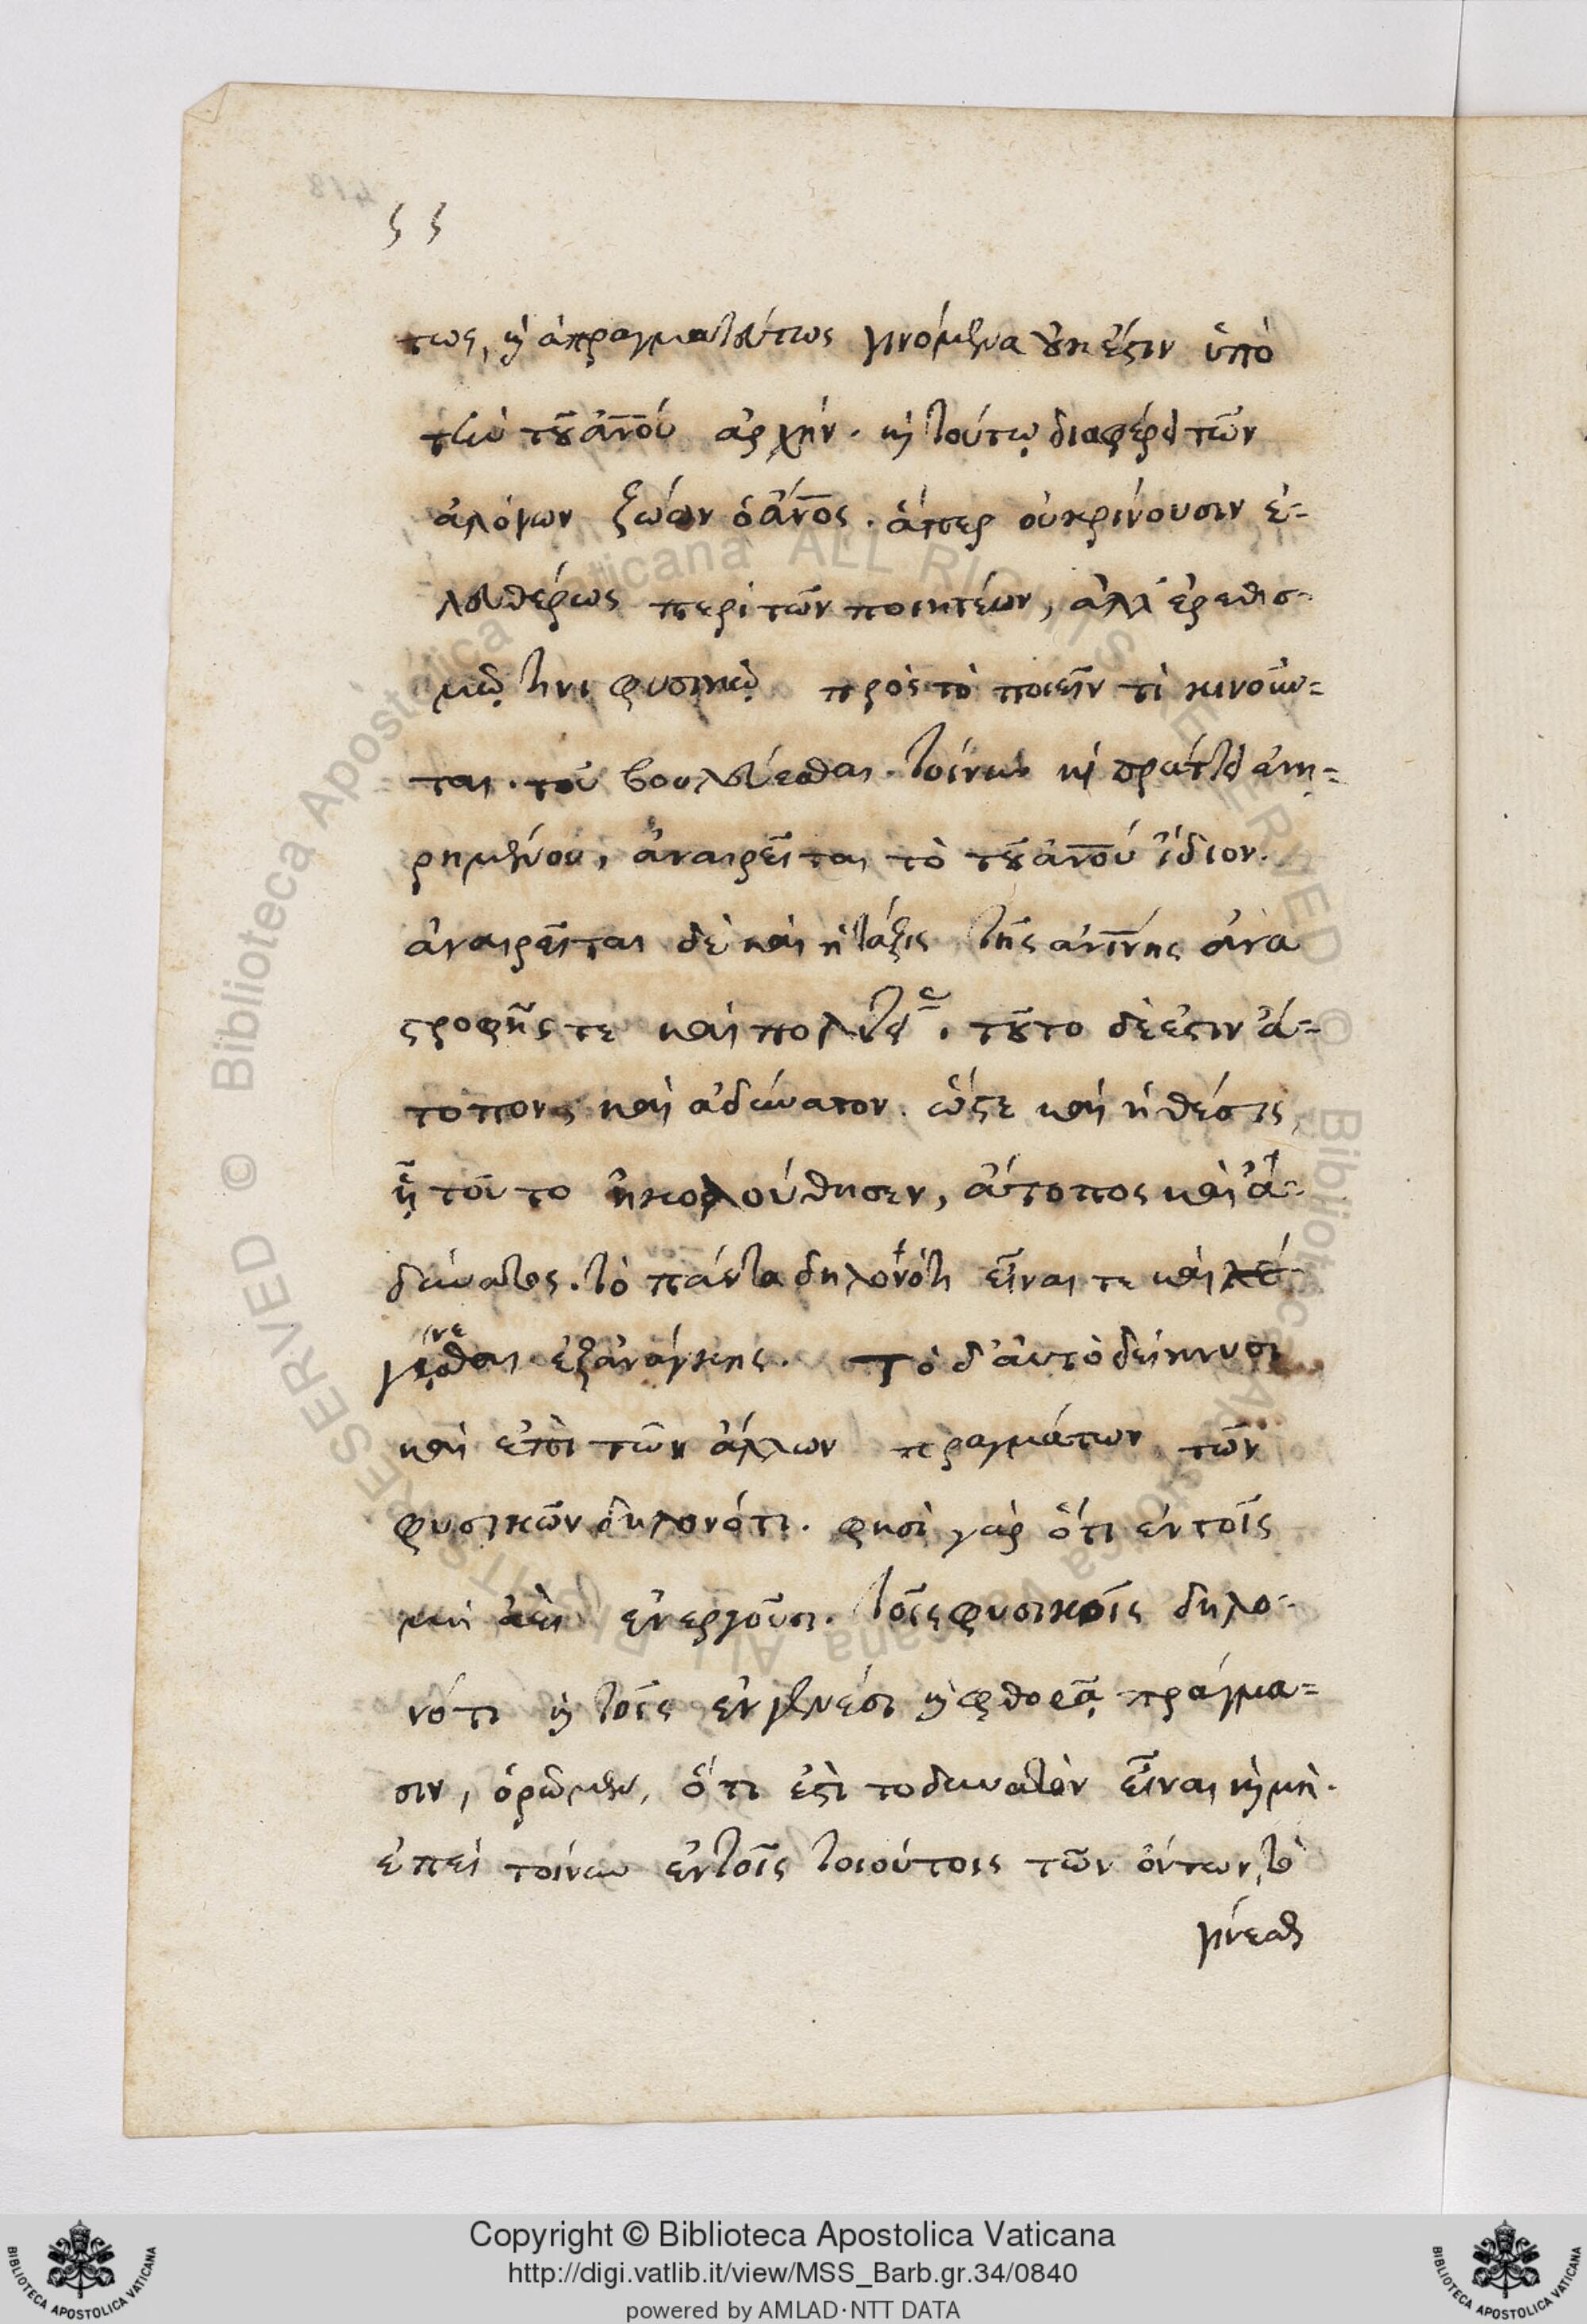 ϛ ϛ
τως, ἢ ἀπραγματεύτως γινόμενα οὐκ ἔστιν ὑπὸ
τὴν τοῦ ἀν̅ο̅υ̅ ἀρχήν. καὶ τούτῳ διαφέρει τῶν
ἀλόγων ζώων ὁ ἄν̅ο̅ς̅. ἅπερ οὐ κρίνουσιν ἐ-
λευθέρως περὶ τῶν ποιητέων, ἀλλ' ἐρεθισ-
μῷ τινι φυσικῷ πρὸς τὸ ποιεῖν τὶ κινοῦν-
ται. τοῦ βουλεύεσθαι τοίνυν καὶ πράττειν ἀνῃ-
ρημένου, ἀναιρεῖται τὸ τοῦ ἀν̅ο̅υ̅ ἴδιον.
ἀναιρεῖται δὲ καὶ ἡ τάξις τῆς ἀν̅ί̅νης ἀνα
στροφῆς τε καὶ πολιτείας. τοῦτο δέ ἐστιν ἄ-
τοπον καὶ ἀδύνατον. ὥστε καὶ ἡ θέσις
ᾗ τοῦτο ἠκολούθησεν, ἄτοπος καὶ ἀ-
δύνατος. τὸ πάντα δηλονότι εἶναι τε καὶ
γίνεσθαι ἐξ ἀνάγκης. Τὸ δ' αὐτὸ δείκνυσι
καὶ ἐπὶ τῶν ἄλλων πραγμάτων τῶν
φυσικῶν δηλονότι. φησὶ γὰρ ὅτι ἐν τοῖς
μὴ ἀεὶ ἐνεργοῦσι. τοῖς φυσικοῖς δηλο-
νότι καὶ τοῖς ἐν γενέσει καὶ φθορᾷ πράγμα-
σιν, ὁρῶμεν, ὅτι ἐστὶ τὸ δυνατὸν εἶναι καὶ μή.
ἐπεὶ τοίνυν ἐν τοῖς τοιούτοις τῶν ὄντων, τὸ
γίνεσθαι
Copyright © Biblioteca Apostolica Vaticana
http://digi.vatlib.it/view/MSS_Barb.gr.34/0840
powered by AMLAD·NTT DATA